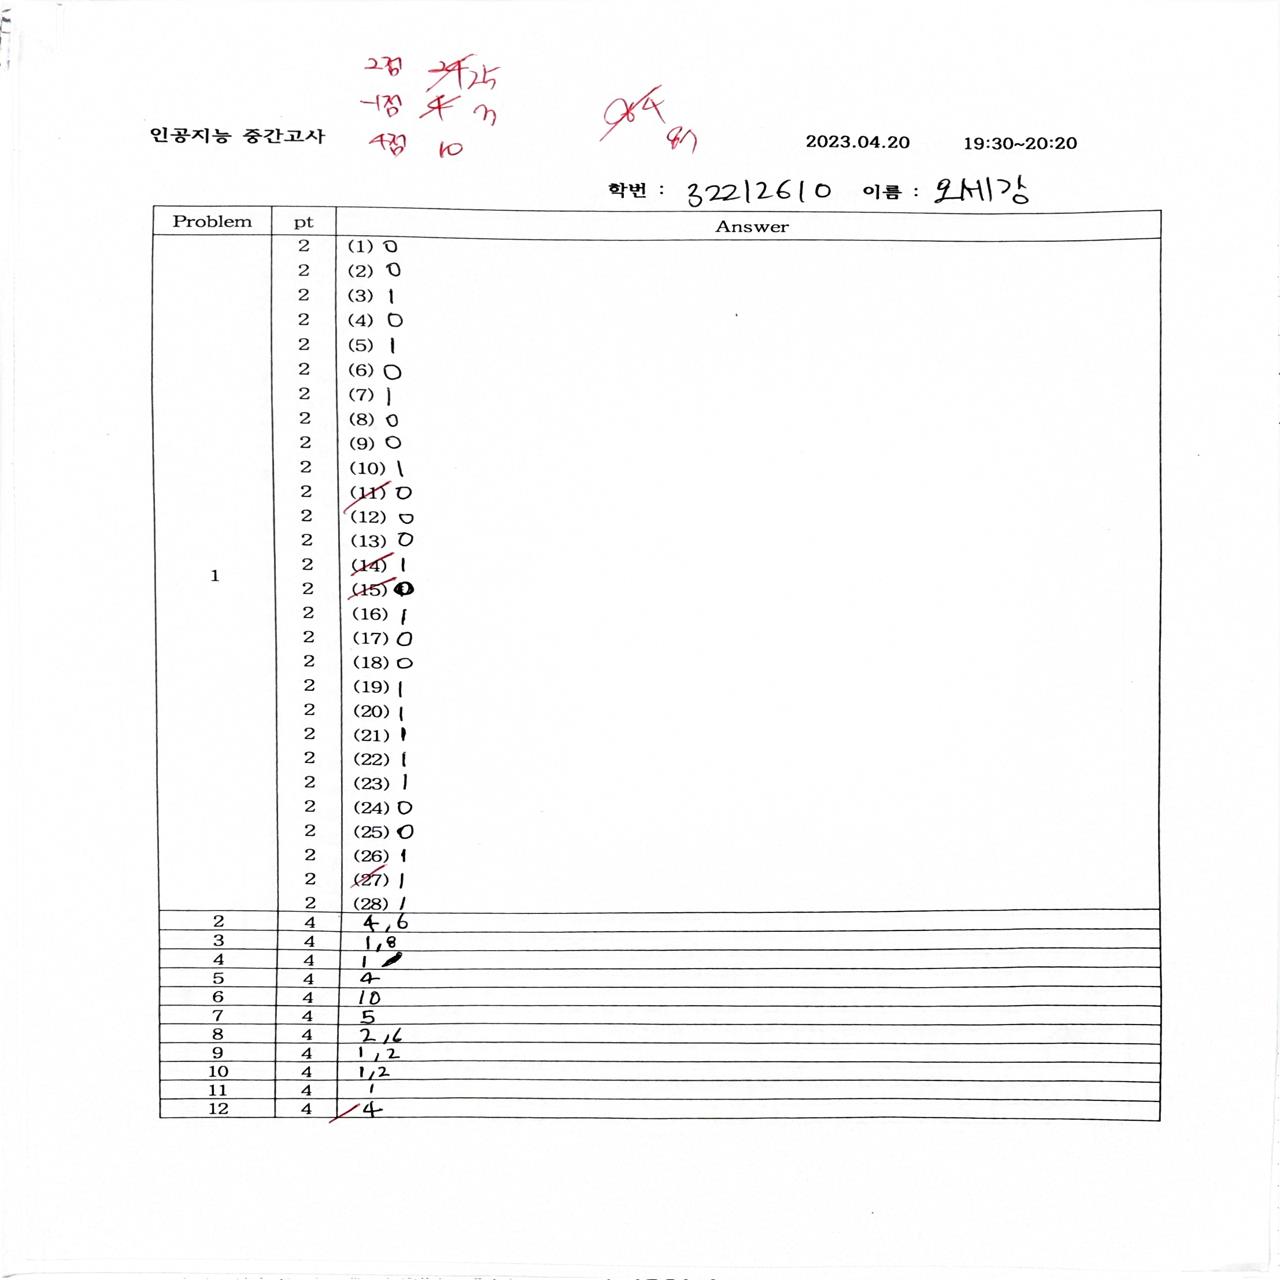 2점 24 25
-1점 4 3
4점 10
84
87
인공지능 중간고사
2023.04.20 19:30~20:20
학번 : 32212610 이름 : 오세강
Problem pt Answer
1
2 (1) 0
2 (2) 0
2 (3) 1
2 (4) 0
2 (5) 1
2 (6) 0
2 (7) 1
2 (8) 0
2 (9) 0
2 (10) 1
2 (11) 0
2 (12) 0
2 (13) 0
2 (14) 1
2 (15) 0
2 (16) 1
2 (17) 0
2 (18) 0
2 (19) 1
2 (20) 1
2 (21) 1
2 (22) 1
2 (23) 1
2 (24) 0
2 (25) 0
2 (26) 1
2 (27) 1
2 (28) 1
2 4 4,6
3 4 1,8
4 4 1
5 4 4
6 4 10
7 4 5
8 4 2,6
9 4 1,2
10 4 1,2
11 4 1
12 4 4